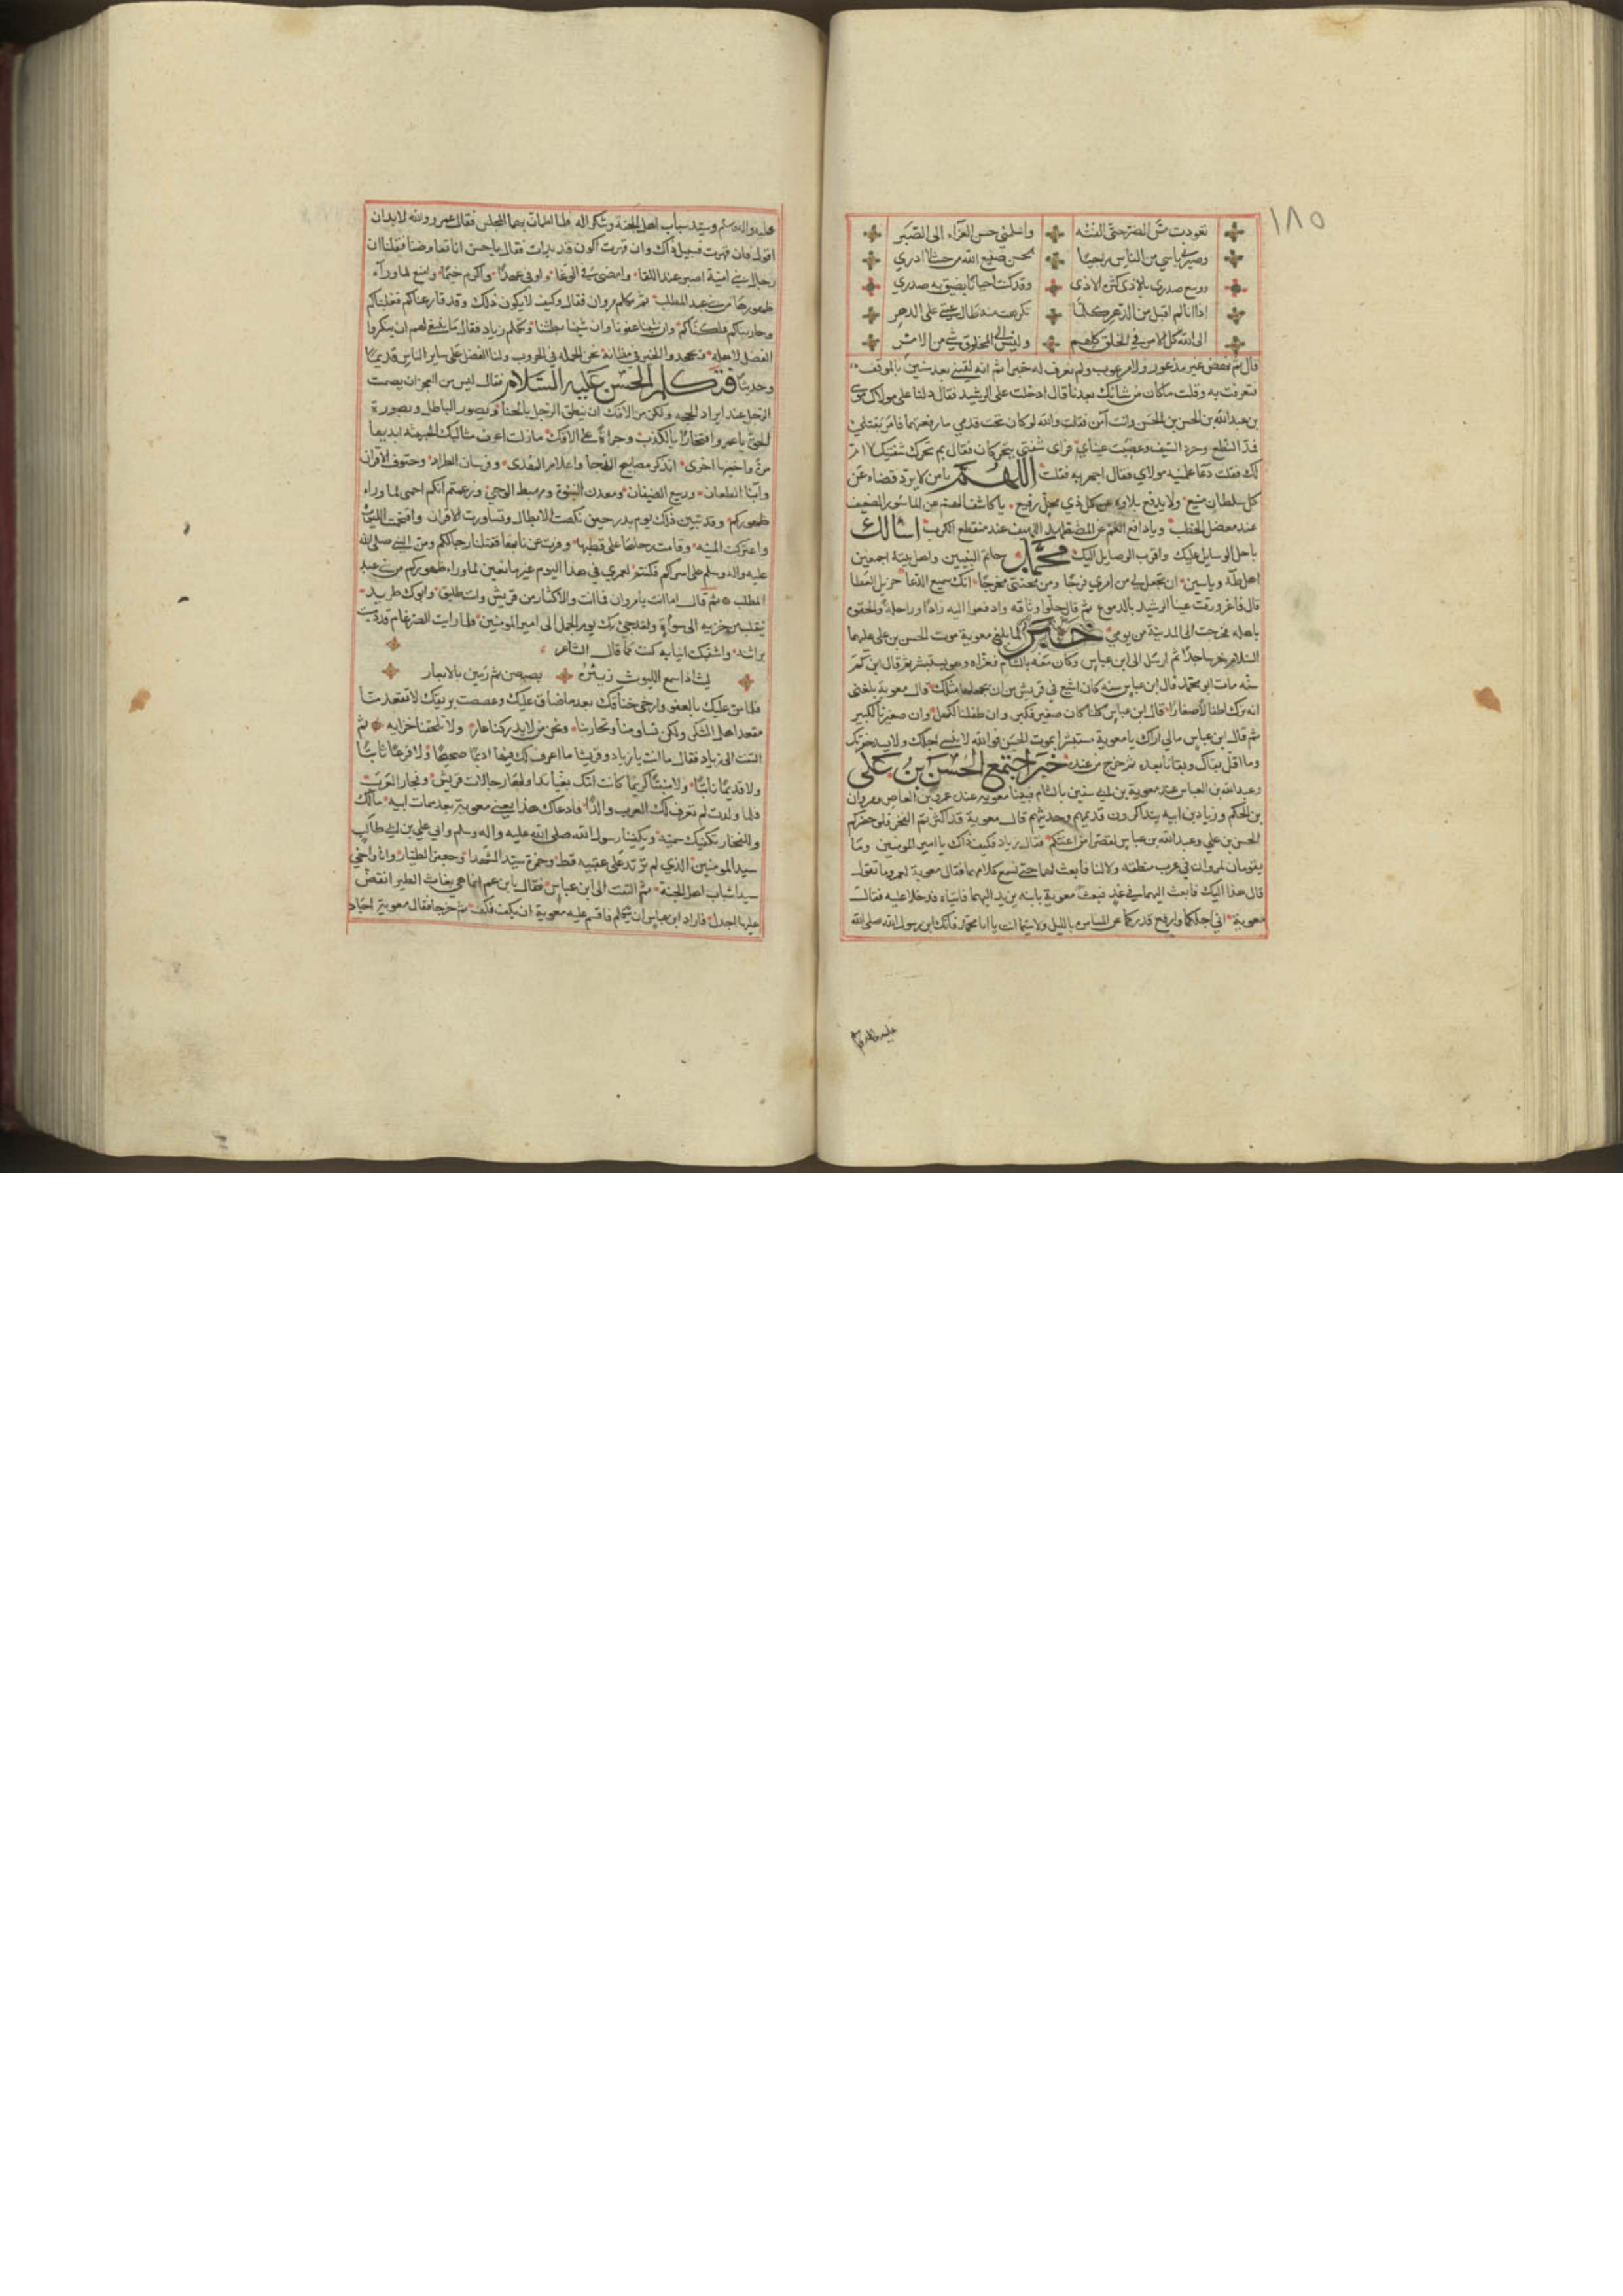 ١٨٥
تعودت مس الضر حتى الفته واسلمني حسن العزاء الى الصبر
وصيرني ياسي من الناس راجيا لحسن صنيع الله من حيث لا ادري
ووسع صدري بالاذى كثرة الاذى وقد كنت احيانا يضيق به صدري
اذا انا لم اقبل من الدهر كلما تكرهت منه طال عتبي على الدهر
الى الله كل الامر في الخلق كلهم وليس الى المخلوق شي من الامر
قال ثم نهض غير مذعور ولا مرعوب ولم نعرف له خبرا ثم انه لقيني بعد سنين بالموقف
فتعرفت به وقلت ما كان من شانك بعدنا قال ادخلت على الرشيد فقال دلنا على مولاك موسى
بن عبد الله بن الحسن بن الحسن وانت آمن فقلت والله لو كان تحت قدمي ما رفعتها فامر بقتلي
فمد النطع وجرد السيف وعصبت عيناي فراى شفتي يتحركان فقال بم تحرك شفتيك لا ام
لك فقلت دعا علمنيه مولاي فقال اجهر به فقلت اللهم يا من لا يرد قضاءه عن
كل سلطان منيع ولا يدفع بلاءه عن كل ذي محل رفيع يا كاشف الضر عن الماسور الضعيف
عند معضل الخطب ويا دافع الغم عن المضطهد اللهيف عند منقطع الكرب اسالك
باجل الوسايل عليك واقرب الوصايل اليك محمد خاتم النبيين واهل بيته اجمعين
اهل طه وياسين ان تجعل لي من امري فرجا ومن محنتي مخرجا انك سميع الدعا جزيل العطا
قال فاغرورقت عينا الرشيد بالدموع ثم قال حلوا وثاقه وادفعوا اليه زادا وراحلة والحقوه
باهله فخرجت الى المدينة من يومي خبر لما بلغ معوية موت الحسن بن علي عليهما
السلام خر ساجدا ثم ارسل الى ابن عباس وكان معه بالشام فعزاه وهو مستبشر ثم قال ابن كم
سنة مات ابو محمد فقال ابن عباس سنه كان اشيع في قريش من ان يجهلها مثلك قال معوية بلغني
انه ترك اطفالا صغارا قال ابن عباس كلنا كان صغير فكبر وان طفلنا لكهل وان صغيرنا لكبير
ثم قال ابن عباس مالي اراك يا معوية مستبشرا بموت الحسن فوالله لا ينسي اجلك ولا يسد حفرتك
وما اقل بقاك وبقانا بعده ثم خرج من عنده خبر اجتمع الحسن بن علي
وعبد الله بن العباس عند معوية بن ابي سفين بالشام فبينا معوية عنده عمرو بن العاص ومروان
بن الحكم وزياد بن ابيه يتذاكرون قديمهم وحديثهم قال معوية قد اكثرتم الفخر فلو حضركم
الحسن بن علي وعبد الله بن عباس لقصرا من اعنتكم فقال زياد فكيف ذاك يا امير المومنين وما
يقومان لمروان في غرب منطقه ولا لنا فابعث لهما حتى نسمع كلامهما فقال معوية لعمرو ما تقول
قال هذا اليك فابعث اليهما في غد فبعث معوية بابنه يزيد اليهما فاتياه فدخلا عليه فقال
معوية اني اجلكما وارفع قدركما عن السامر بالليل ولا سيما انت يا ابا محمد فانك ابن رسول الله صلى الله
عليه واله وسلم
عليه واله وسلم وسيد شباب اهل الجنة وشكرا له فلما اطمان بهما المجلس فقال عمرو والله لا بد ان
اقول فان قهرت فسبيل ذاك وان قهرت اكون قد بدات فقال يا حسن انا تفاوضنا فقلنا ان
رجال بني امية اصبر عند اللقا وامضى في الوغا واوفى عهدا واكرم خيما وامنع لما وراء
ظهورها من بني عبد المطلب ثم تكلم مروان فقال وكيف لا يكون ذلك وقد قارعناكم فغلبناكم
وحاربناكم فملكناكم وان شينا عفونا وان شينا بطشنا وتكلم زياد فقال ما ينبغي لهم ان ينكروا
الفضل لاهله ويجحدوا الخير في مظانه نحن الحملة في الحروب ولنا الفضل على ساير الناس قديما
وحديثا فتكلم الحسن عليه السلام فقال ليس من العجز ان يصمت
الرجل عند ايراد الحجه ولكن من الافك ان ينطق الرجل بالخنا وتصور الباطل بصورة
الحق يا عمرو افتخارا بالكذب وجراة على الافك ما زلت اعرف مثالبك الخبيثه ابديها
مرة واخفيها اخرى اتذكر مصابيح الدجا واعلام الهدى وفرسان الطراد وحتوف الاقران
وابنا الطعان وربيع الضيفان ومعدن النبوة ومهبط الوحي وزعمتم انكم احمى لما وراء
ظهوركم وقد تبين ذلك يوم بدر حين نكصت الابطال وتساورت الاقران واقتحمت الليوث
واعتركت المنيه وقامت رحاها على قطبها وفرت عن نابها فقتلنا رجالكم ومن النبي صلى الله
عليه واله وسلم على اسراكم فكنتم لعمري في هذا اليوم غير مانعين لما وراء ظهوركم من بني عبد
المطلب ثم قال اما انت يا مروان فما انت والاكثار من قريش وانت طليق وابوك طريد
تتقلب من خزيه الى سوأة ولقد جيء بك يوم الجمل الى امير المومنين فلما رايت الضرغام قد دميت
براثنه واشتبكت انيابه كنت كما قال الشاعر
ليث اذا سمع الليوث زئيره بصبصن ثم رمين بالابعار
فلما من عليك بالعفو وارخى خناقك بعد ما ضاق عليك وغصصت بريقك لا تقعد منا
مقعد اهل الشكر ولكن تساومنا وتحاربنا ونحن من لا يدركنا عار ولا تلحقنا خزايه ثم
التفت الى زياد فقال ما انت يا زياد وقريشا ما اعرف لك فيها اديما صحيحا ولا فرعا ثابتا
ولا قديما نابتا ولا منبتا كريما كانت امك بغيا تداولها رجالات قريش وفجار العرب
فلما ولدت لم تعرف لك العرب والدا فادعاك هذا يعني معوية بعد ممات ابيه مالك
والفخار تكفيك سميه ويكفينا رسول الله صلى الله عليه واله وسلم وابي علي بن ابي طالب
سيد المومنين الذي لم يرتد على عقبيه قط وحمزة سيد الشهدا وجعفر الطيار وانا واخي
سيدا شباب اهل الجنة ثم التفت الى ابن عباس فقال يا ابن عم انما هي بغاث الطير انقض
عليها اجدل فاراد ابن عباس ان يتكلم فاقسم عليه معوية ان يكف فكف ثم خرجا فقال معوية اجاد